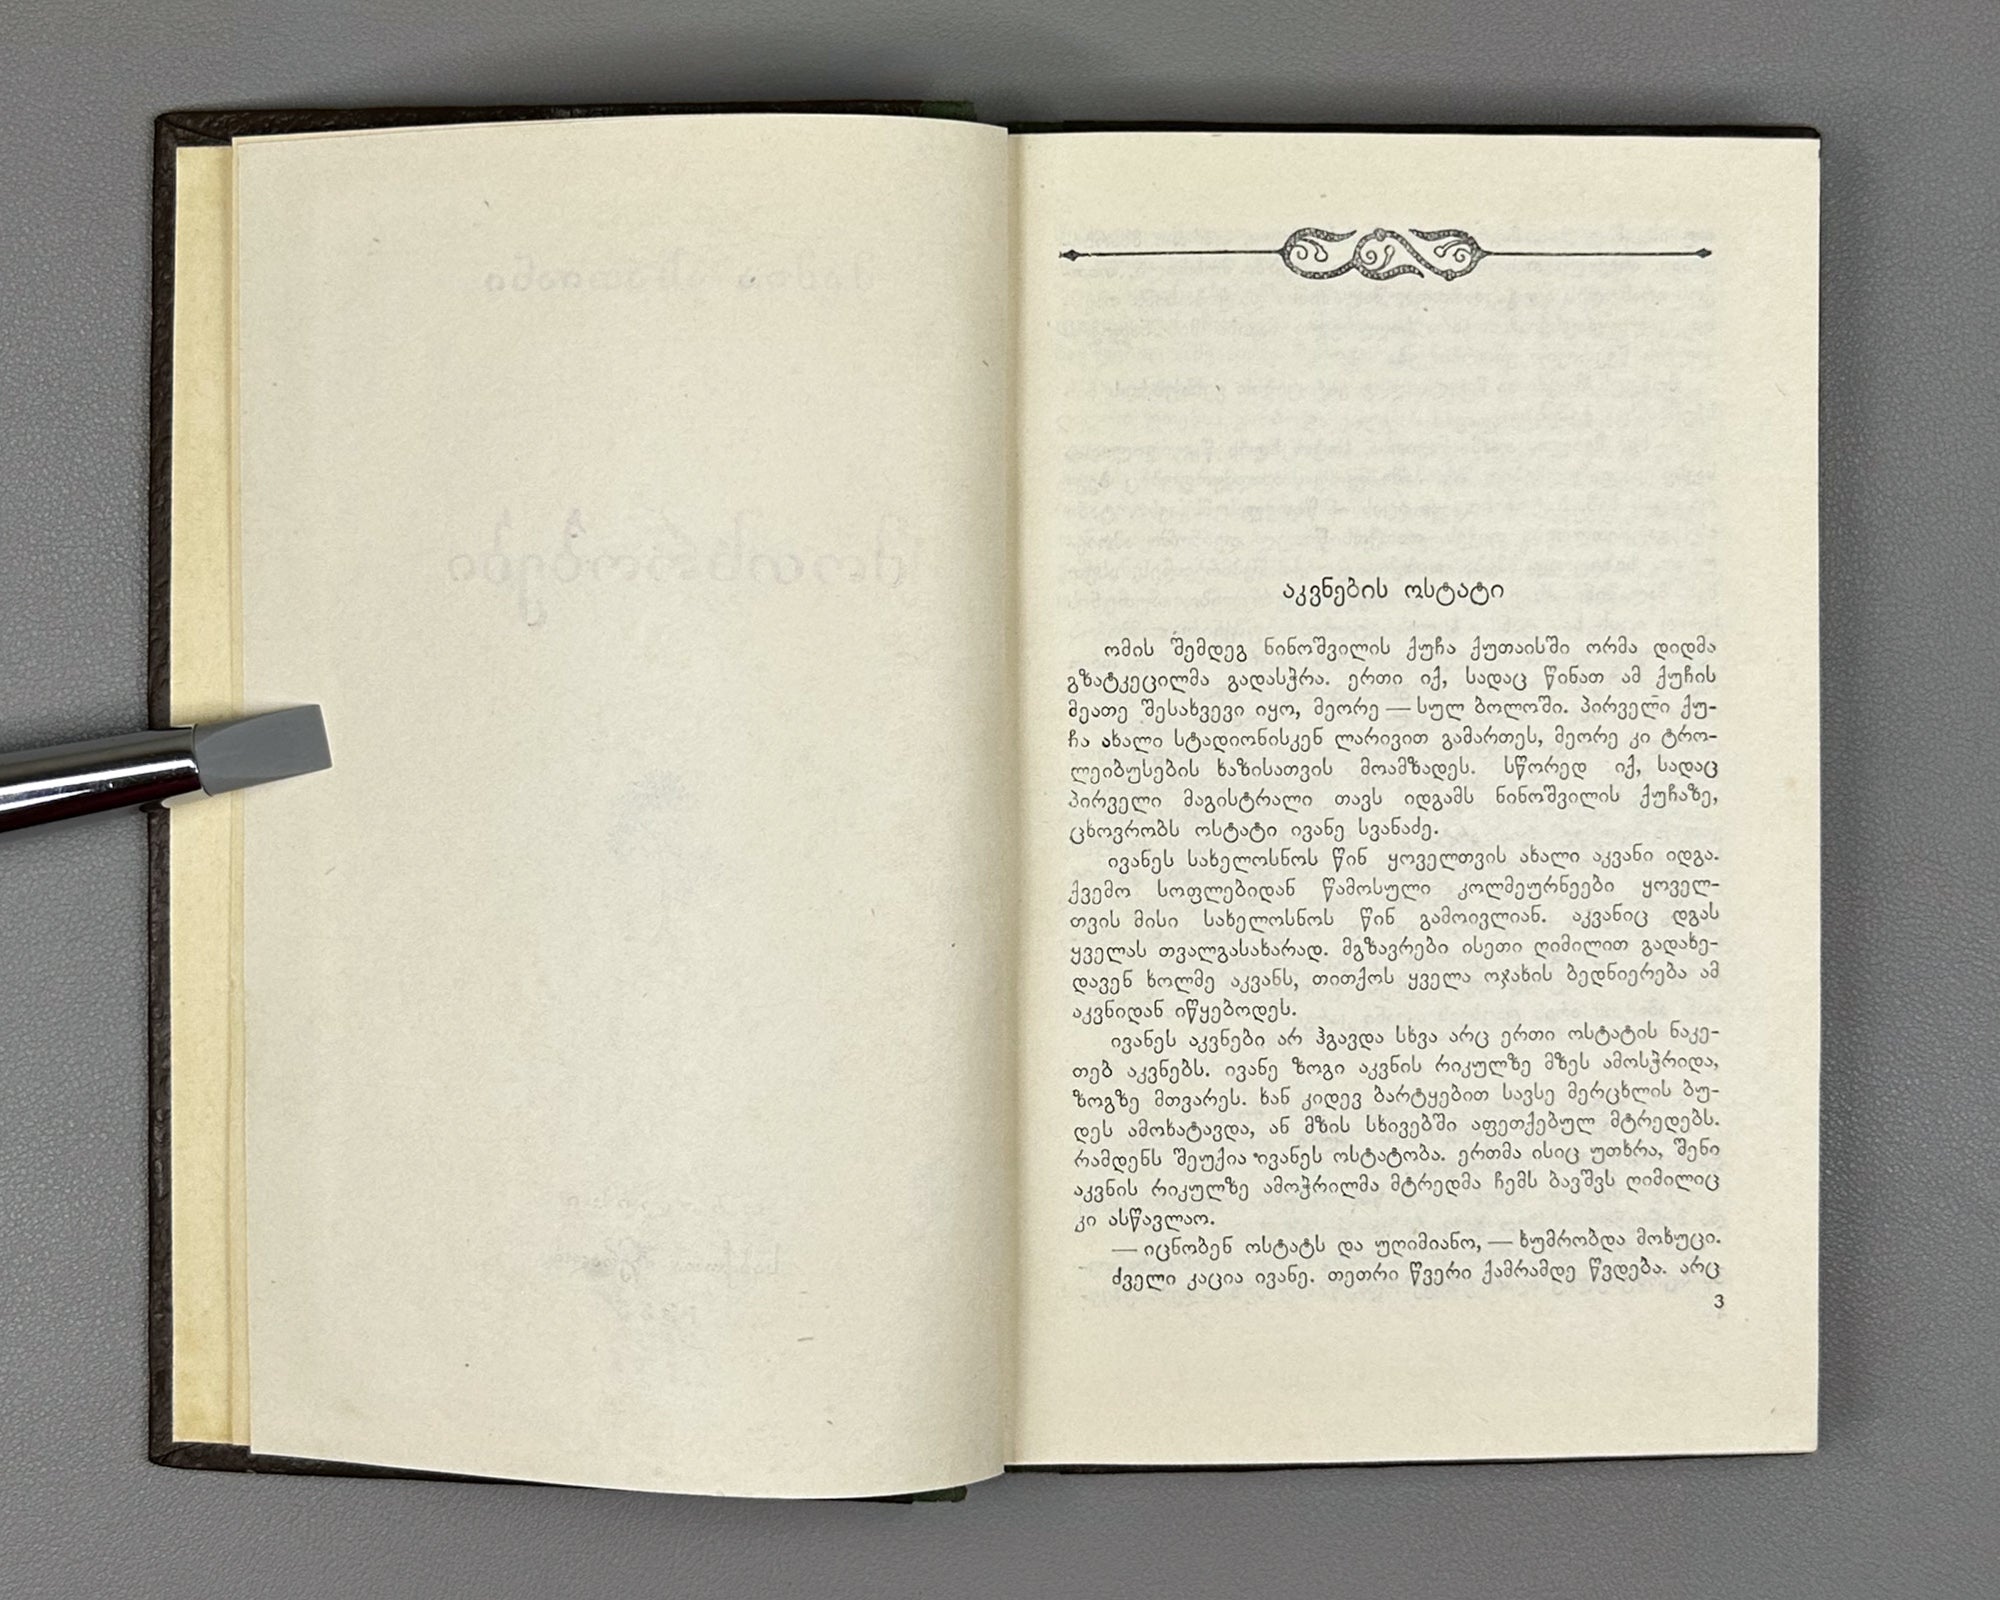 აკვნების ოსტატი
ომის შემდეგ ნინოშვილის ქუჩა ქუთაისში ორმა დიდმა
გზატკეცილმა გადასჭრა. ერთი იქ, სადაც წინათ ამ ქუჩის
მეათე შესახვევი იყო, მეორე — სულ ბოლოში. პირველი ქუ-
ჩა ახალი სტადიონისკენ ლარივით გამართეს, მეორე კი ტრო-
ლეიბუსების ხაზისათვის მოამზადეს. სწორედ იქ, სადაც
პირველი მაგისტრალი თავს იდგამს ნინოშვილის ქუჩაზე,
ცხოვრობს ოსტატი ივანე სვანაძე.
ივანეს სახელოსნოს წინ ყოველთვის ახალი აკვანი იდგა.
ქვემო სოფლებიდან წამოსული კოლმეურნეები ყოველ-
თვის მისი სახელოსნოს წინ გამოივლიან. აკვანიც დგას
ყველას თვალგასახარად. მგზავრები ისეთი ღიმილით გადახე-
დავენ ხოლმე აკვანს, თითქოს ყველა ოჯახის ბედნიერება ამ
აკვნიდან იწყებოდეს.
ივანეს აკვნები არ ჰგავდა სხვა არც ერთი ოსტატის ნაკე-
თებ აკვნებს. ივანე ზოგი აკვნის რიკულზე მზეს ამოსჭრიდა,
ზოგზე მთვარეს. ხან კიდევ ბარტყებით სავსე მერცხლის ბუ-
დეს ამოხატავდა, ან მზის სხივებში აფეთქებულ მტრედებს.
რამდენს შეუქია ივანეს ოსტატობა. ერთმა ისიც უთხრა, შენი
აკვნის რიკულზე ამოჭრილმა მტრედმა ჩემს ბავშვს ღიმილიც
კი ასწავლაო.
— იცნობენ ოსტატს და უღიმიანო, — ხუმრობდა მოხუცი.
ძველი კაცია ივანე. თეთრი წვერი ქამრამდე წვდება. არც
3